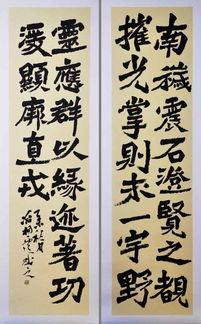 南巍震石澄賢之覩
摧光掌則求一宇野
靈應群以緣迹著功
爰顯廓直戎